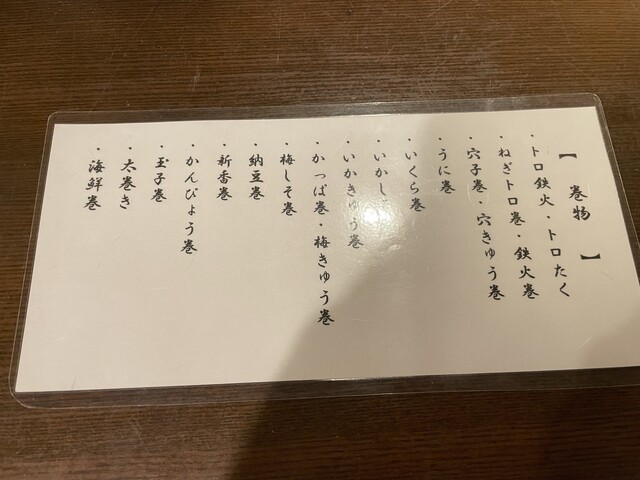 【巻物】
・トロ鉄火・トロたく
・ねぎトロ巻・鉄火巻
・穴子巻・穴きゅう巻
・うに巻
・いくら巻
・いかし
・いかきゅう巻
・かっぱ巻・梅きゅう巻
・梅しそ巻
・納豆巻
・新香巻
・かんぴょう巻
・玉子巻
・太巻き
・海鮮巻